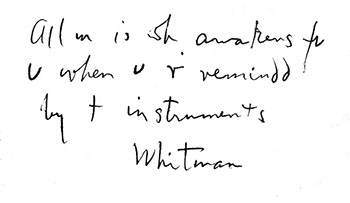 All m is wh awakens fr
u when u r remindd
by t instruments
Whitman